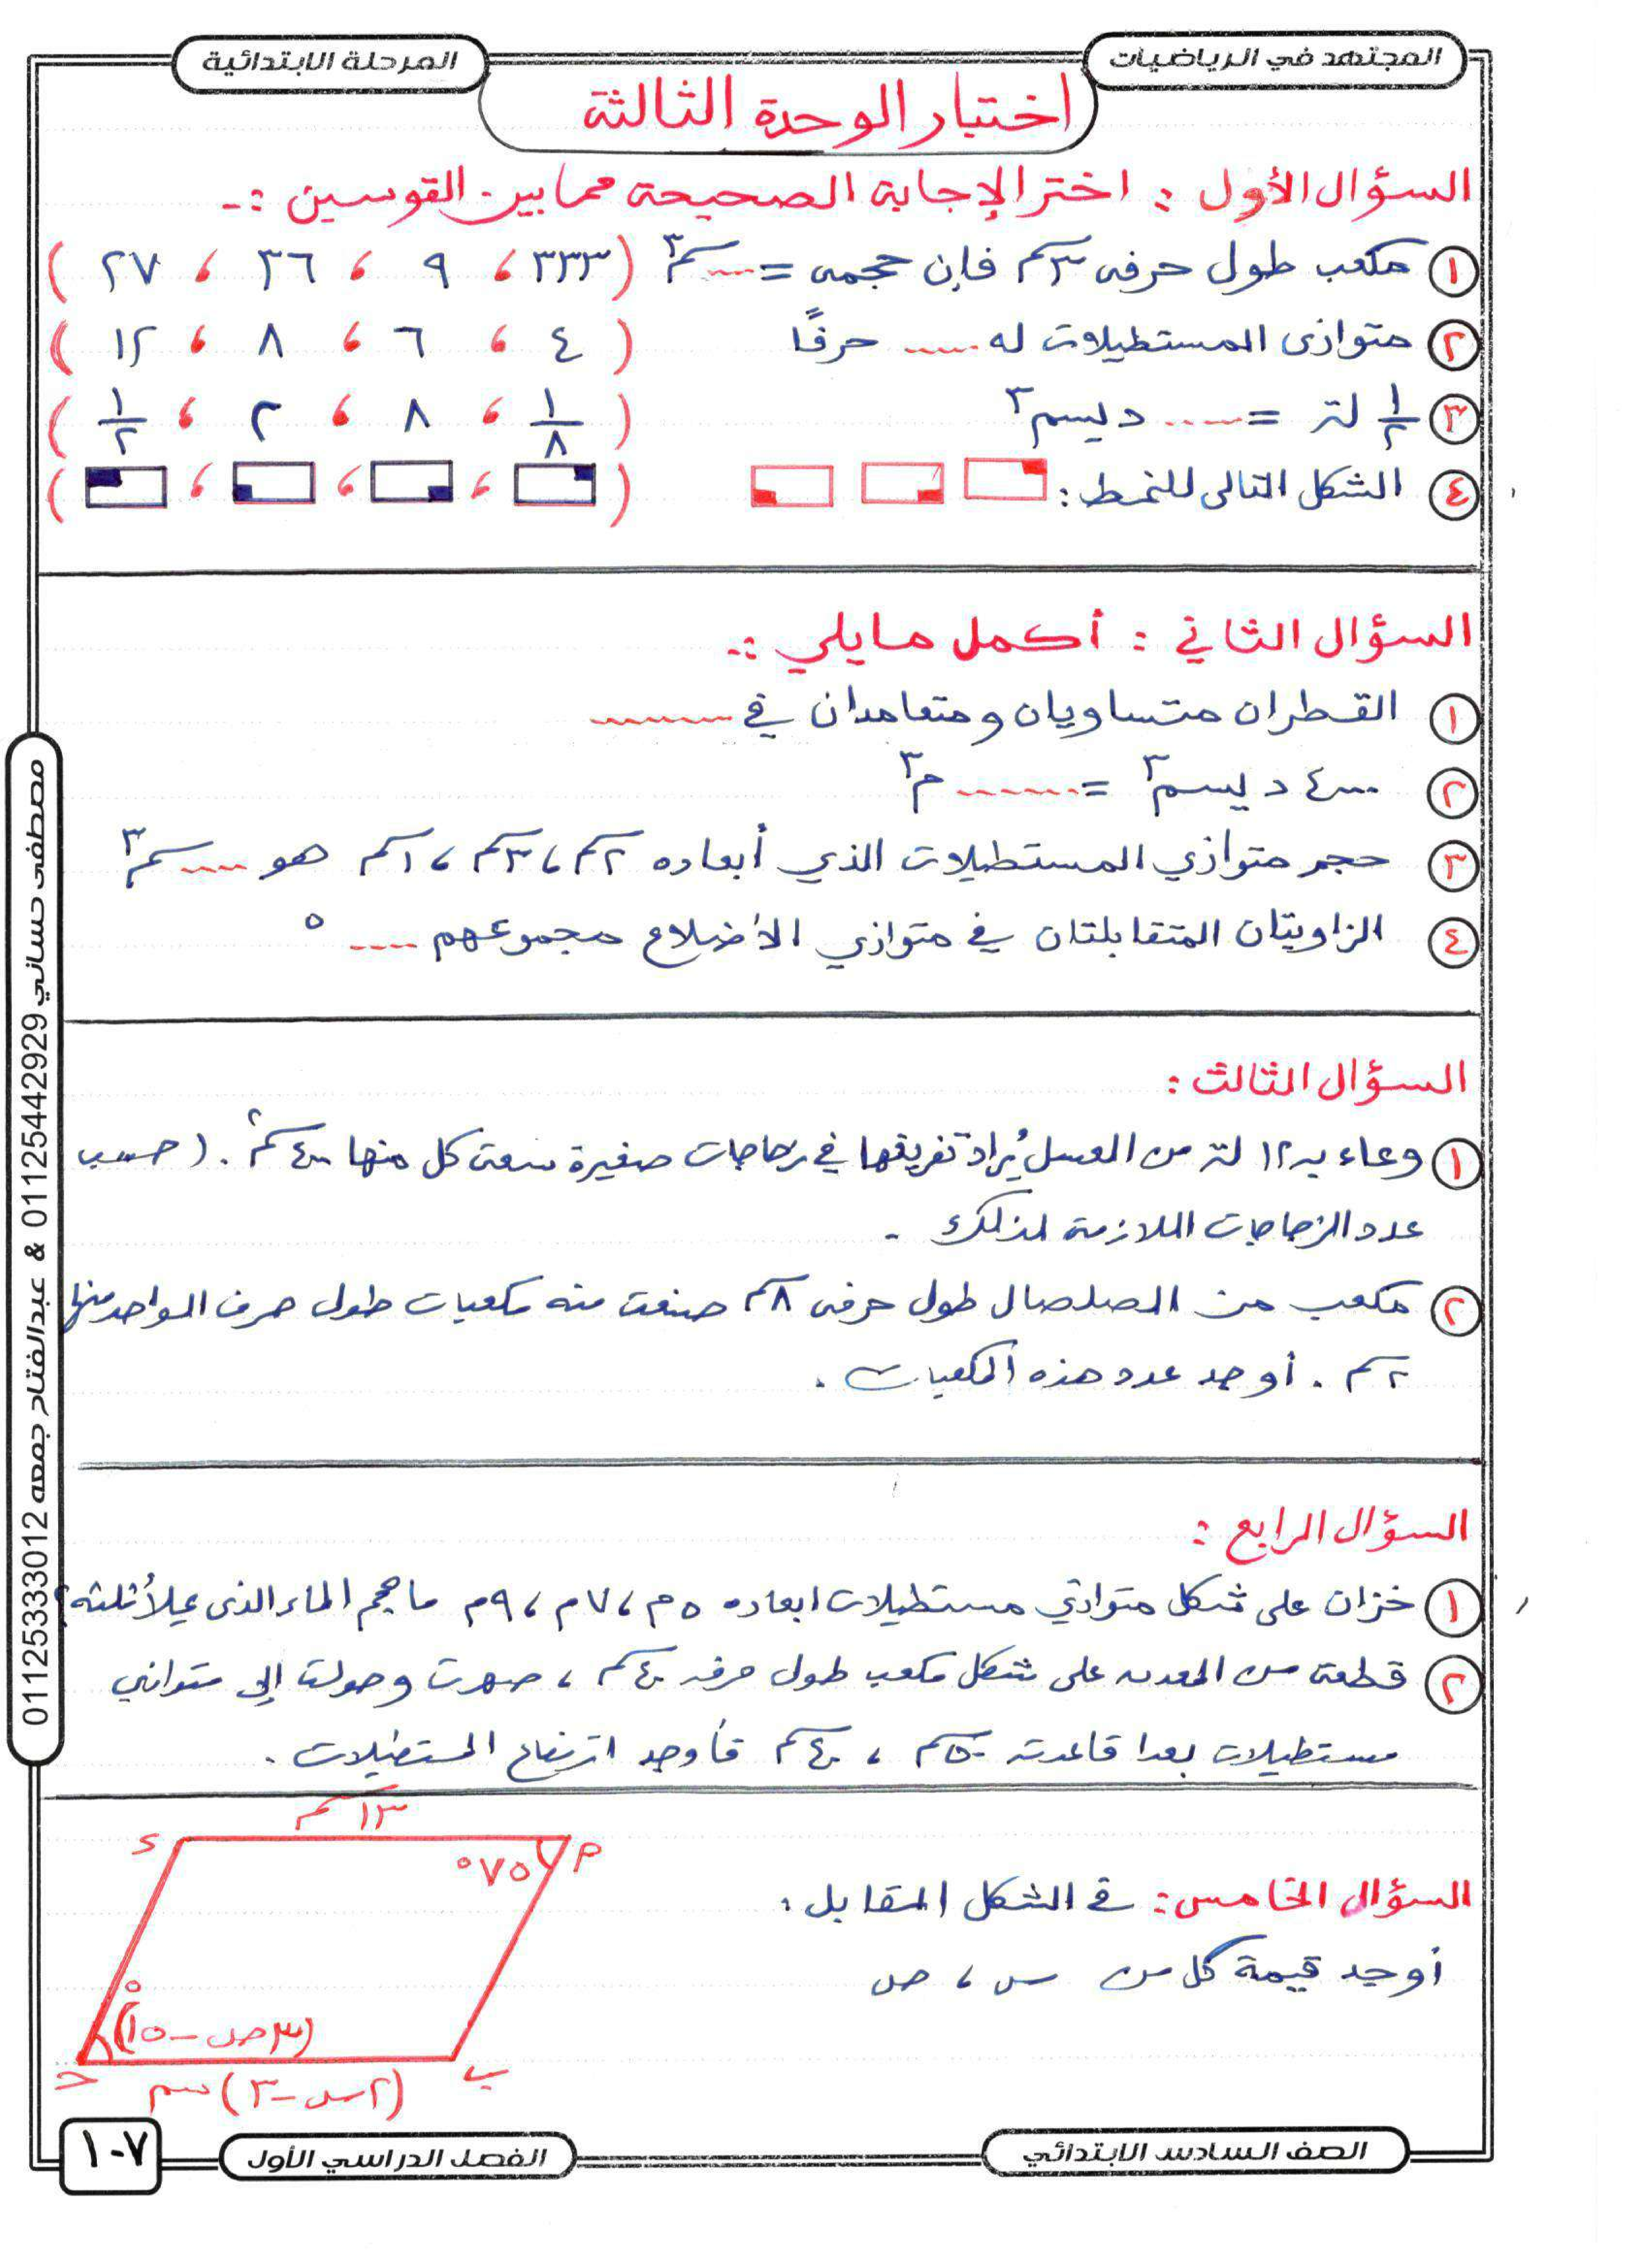 المجتهد في الرياضيات
المرحلة الابتدائية
اختبار الوحدة الثالثة
السؤال الأول : اختر الإجابة الصحيحة مما بين القوسين :-
١ مكعب طول حرفه ٣سم فإن حجمه = .... سم٣ ( ٣٣٣ ، ٩ ، ٣٦ ، ٢٧ )
٢ متوازى المستطيلات له ..... حرفًا ( ٤ ، ٦ ، ٨ ، ١٢ )
٣ ١/٢ لتر = ..... ديسم٣ ( ١/٨ ، ٨ ، ٢ ، ١/٢ )
٤ الشكل التالى للنمط : ( ، ، ، )
السؤال الثاني : أكمل مايلي :-
١ القطران متساويان ومتعامدان في .........
٢ ٤٠٠٠ ديسم٣ = ........ م٣
٣ حجم متوازي المستطيلات الذي أبعاده ٢سم ، ٣سم ، ١سم هو ..... سم٣
٤ الزاويتان المتقابلتان في متوازي الأضلاع مجموعهم .... °
السؤال الثالث :
١ وعاء به ١٢ لتر من العسل يُراد تفريغها في زجاجات صغيرة سعة كل منها ٤٠٠سم٣ . احسب
عدد الزجاجات اللازمة لذلك .
٢ مكعب من الصلصال طول حرفه ٨سم صنعت منه مكعبات طول حرف الواحد منها
٢سم . أوجد عدد هذه المكعبات .
السؤال الرابع :
١ خزان على شكل متوازي مستطيلات ابعاده ٥م ، ٧م ، ٩م ما حجم الماء الذى يملأ ثلثه ؟
٢ قطعة من المعدن على شكل مكعب طول حرفه ٤٠سم ، صهرت وحولت إلى متوازي
مستطيلات بعدا قاعدته ٥٠سم ، ٤٠سم فأوجد ارتفاع المستطيلات .
السؤال الخامس : في الشكل المقابل :
أوجد قيمة كل من س ، ص
١٣سم
٤
م
٧٥°
(٣ص-١٥)°
ح
ب
(٢س-٣)سم
مصطفى حساني 01125442929 & عبدالفتاح جمعه 01125333012
الصف السادس الابتدائي
الفصل الدراسي الأول
١٠٧